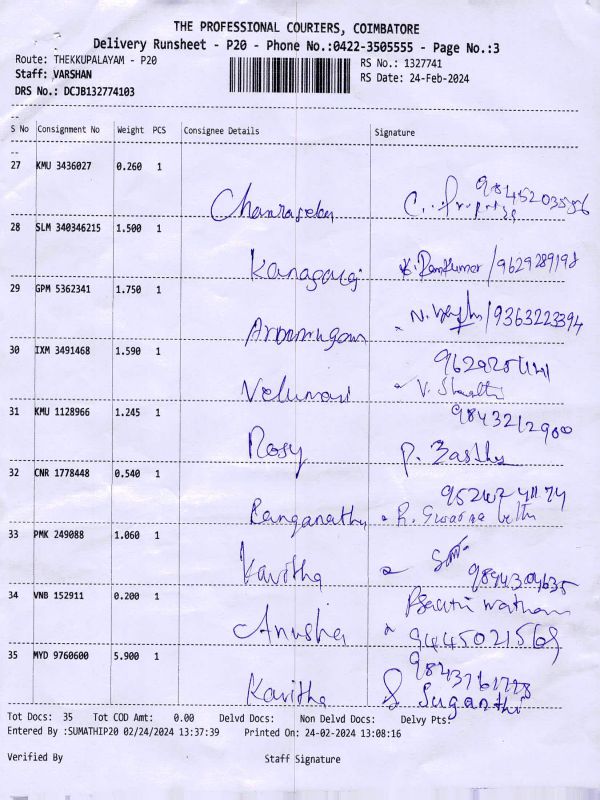 THE PROFESSIONAL COURIERS, COIMBATORE
Delivery Runsheet - P20 - Phone No.:0422-3505555 - Page No.:3
Route: THEKKUPALAYAM - P20 RS No.: 1327741
Staff: VARSHAN RS Date: 24-Feb-2024
DRS No.: DCJB132774103
S No Consignment No Weight PCS Consignee Details Signature
27 KMU 3436027 0.260 1
9845203556
Chanrasekar C.
28 SLM 340346215 1.500 1
Kanagaraj K. Ramkumar / 9629289198
29 GPM 5362341 1.750 1
Arumugam N. /9363223394
30 IXM 3491468 1.590 1
Velumani V.
31 KMU 1128966 1.245 1
Rosy P.
32 CNR 1778448 0.540 1
Ranganatha R.
33 PMK 249088 1.060 1
Kavitha 9894304635
34 VNB 152911 0.200 1
Anusha 9445021569
35 MYD 9760600 5.900 1
9843761728
Kavitha S Suganthi
Tot Docs: 35 Tot COD Amt: 0.00 Delvd Docs: Non Delvd Docs: Delvy Pts:
Entered By :SUMATHIP20 02/24/2024 13:37:39 Printed On: 24-02-2024 13:08:16
Verified By Staff Signature